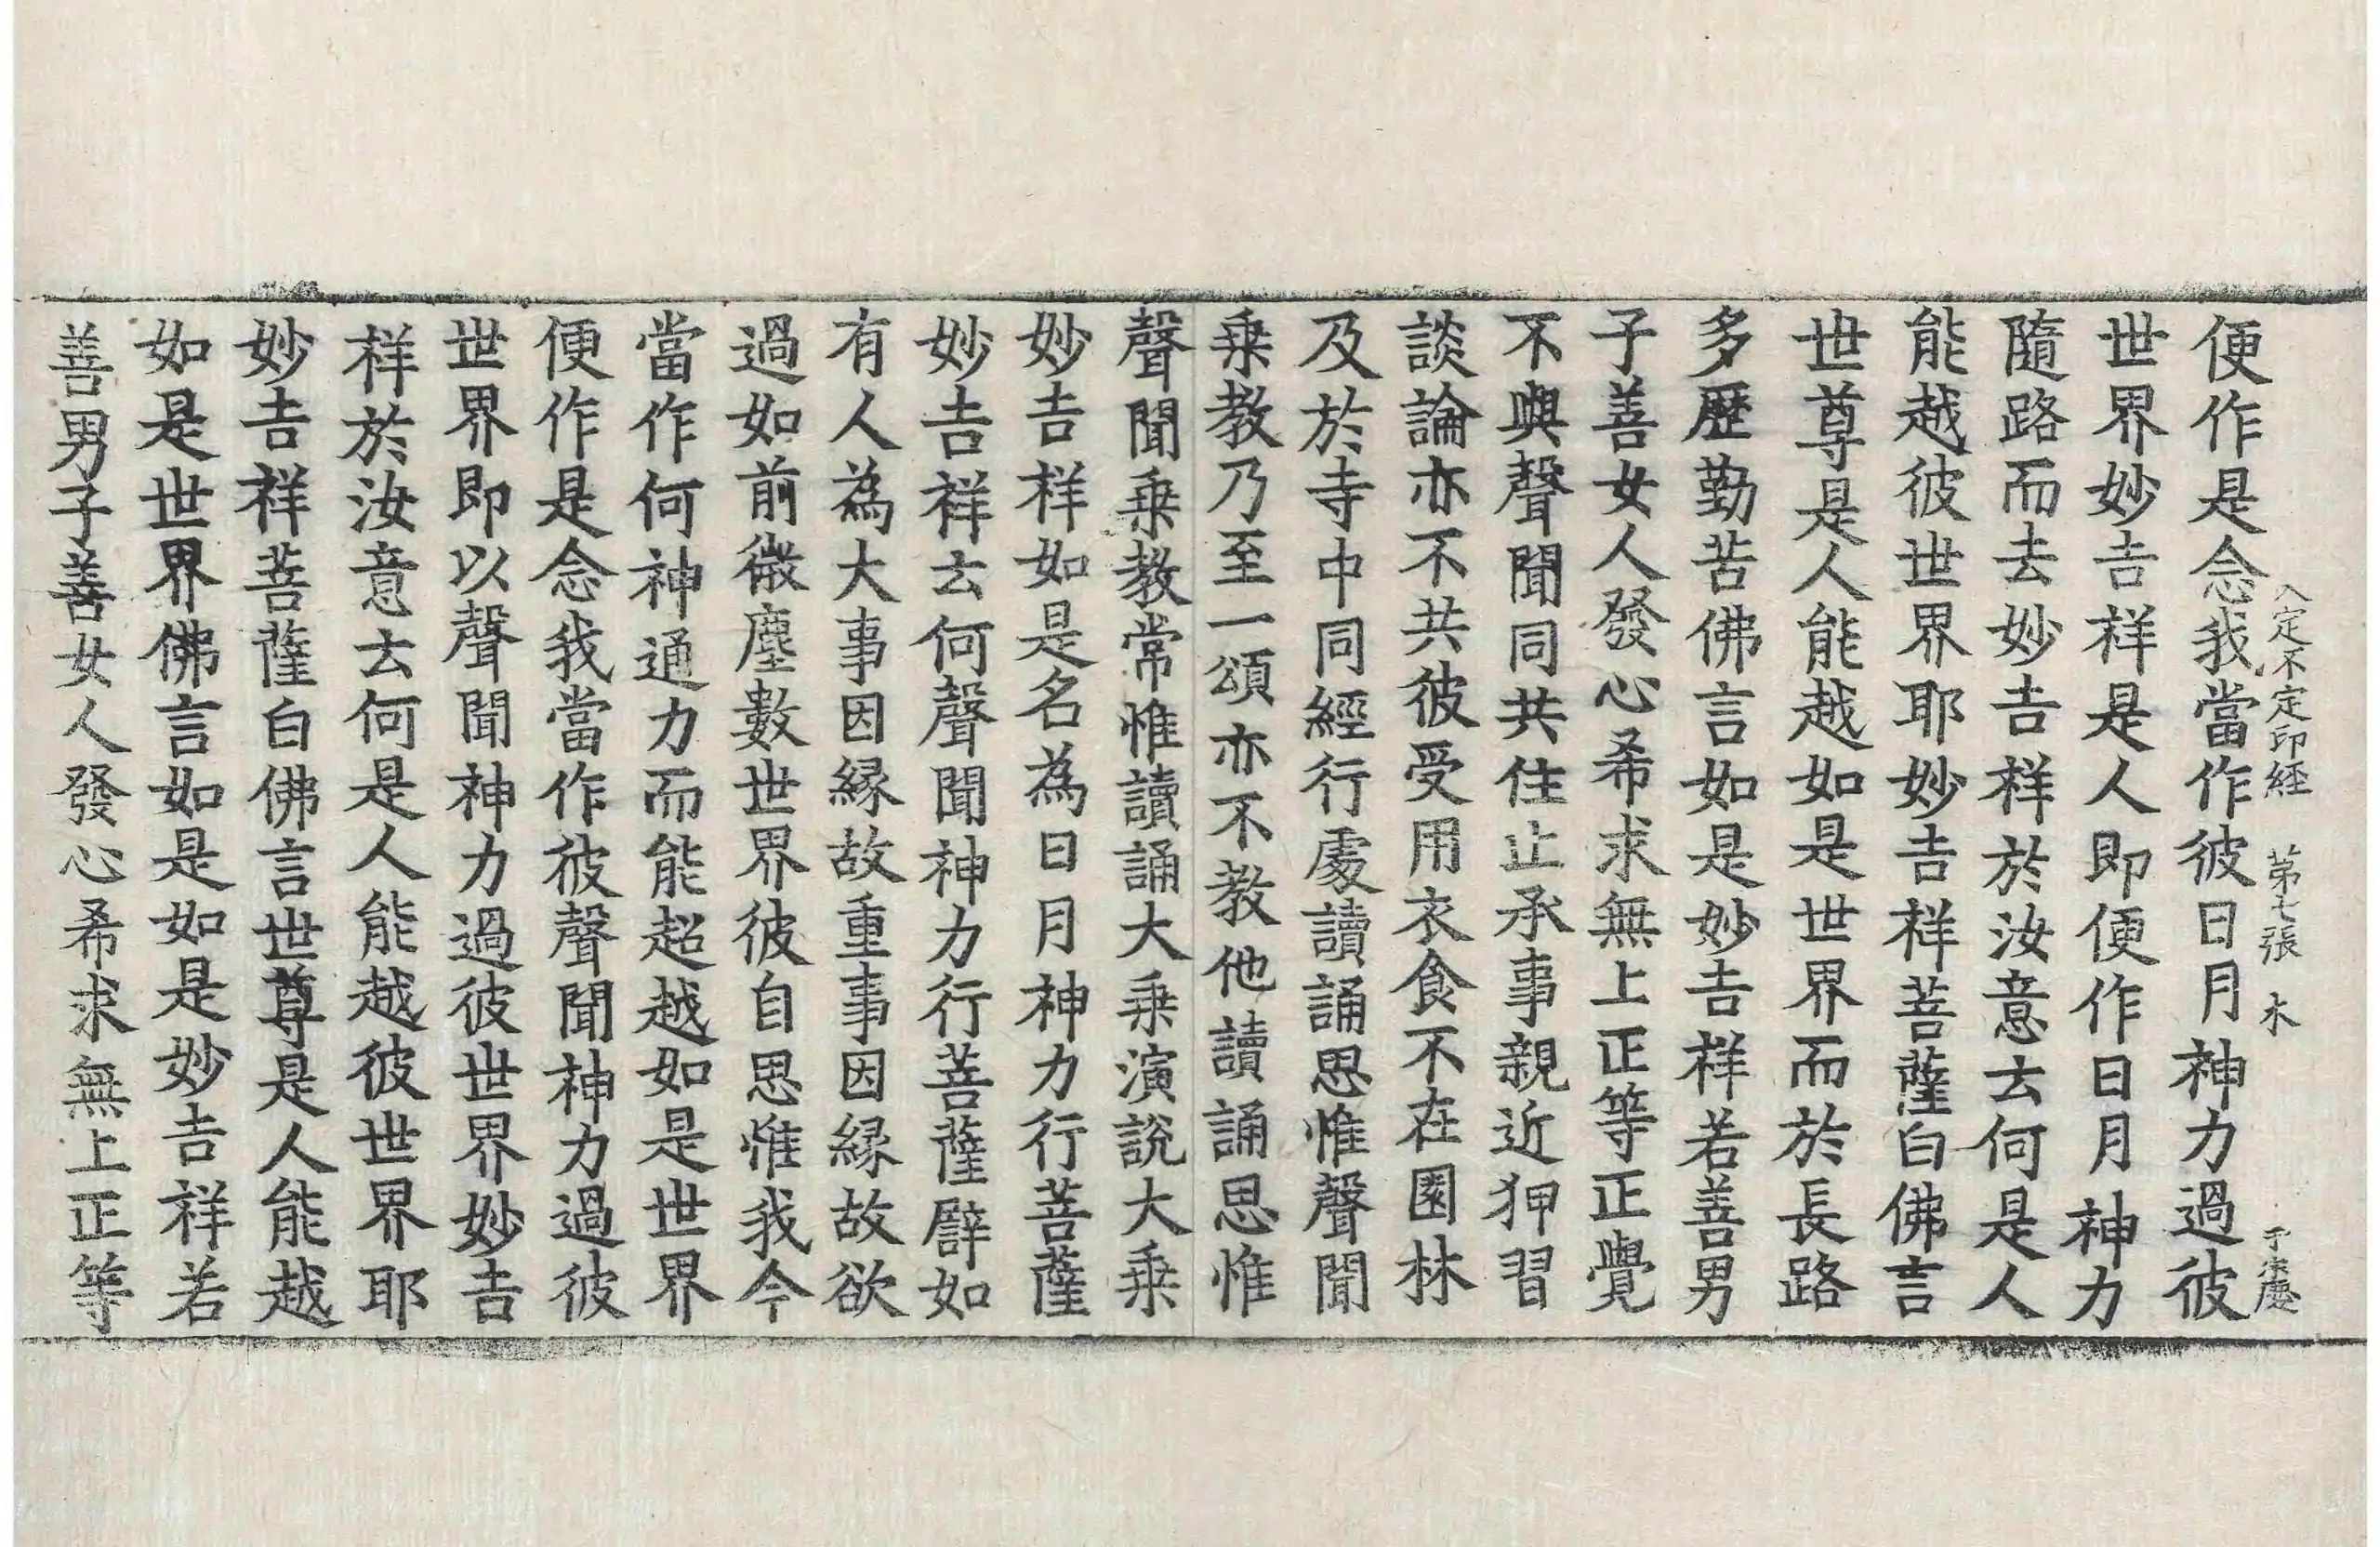 便作是念我當作彼日月神力過彼
入定不定印経 苐七張 木
世界妙吉祥是人即便作日月神力
隨路而去妙吉祥於汝意云何是人
能越彼世界耶妙吉祥菩薩白佛言
世尊是人能越如是世界而於長路
多歷勤苦佛言如是妙吉祥若善男
子善女人發心希求無上正等正覺
不與聲聞同共住止承事親近狎習
談論亦不共彼受用衣食不在園林
及於寺中同經行處讀誦思惟聲聞
乗教乃至一頌亦不教他讀誦思惟
聲聞乗教常惟讀誦大乗演說大乗
妙吉祥如是名為日月神力行菩薩
妙吉祥云何聲聞神力行菩薩譬如
有人為大事因縁故重事因縁故欲
過如前微塵數世界彼自思惟我今
當作何神通力而能超越如是世界
便作是念我當作彼聲聞神力過彼
世界即以聲聞神力過彼世界妙吉
祥於汝意云何是人能越彼世界耶
妙吉祥菩薩白佛言世尊是人能越
如是世界佛言如是如是妙吉祥若
善男子善女人發心希求無上正等